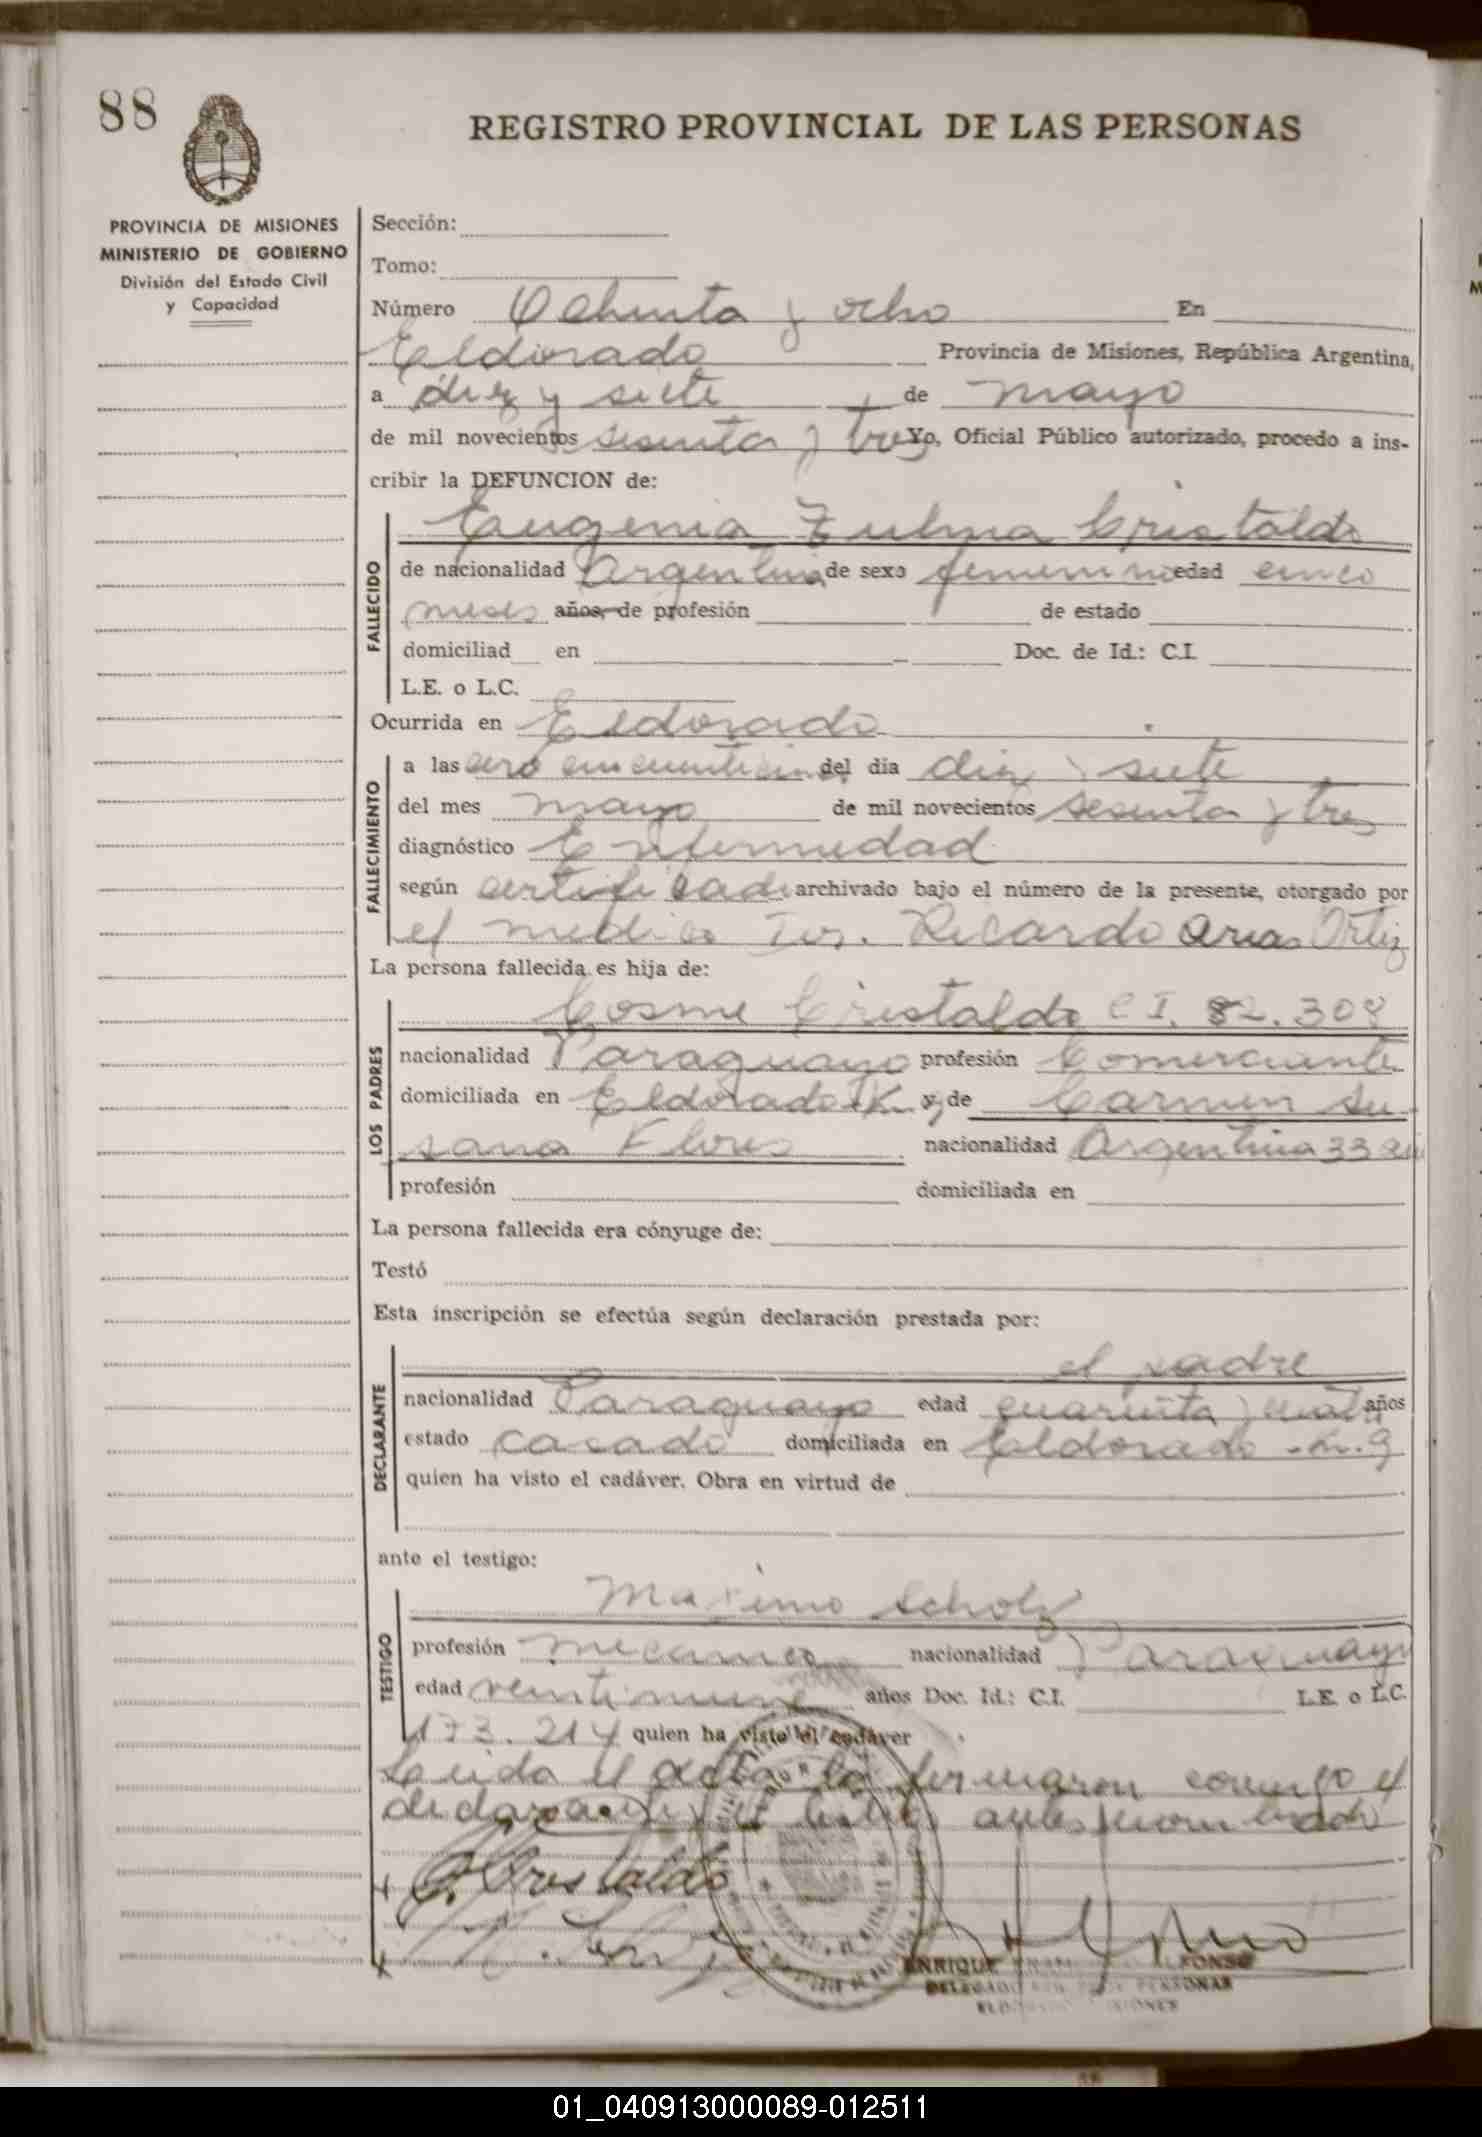 88
REGISTRO PROVINCIAL DE LAS PERSONAS
PROVINCIA DE MISIONES
MINISTERIO DE GOBIERNO
División del Estado Civil
y Capacidad
Sección:
Tomo:
Número Ochenta y ocho En
Eldorado Provincia de Misiones, República Argentina,
a diez y siete de mayo
de mil novecientos sesenta y tres Yo, Oficial Público autorizado, procedo a ins-
cribir la DEFUNCION de:
Eugenia Zulma Cristaldo
FALLECIDO
de nacionalidad Argentina de sexo femenino edad cinco
meses años, de profesión de estado
domiciliad en Doc. de Id.: C.I.
L.E. o L.C.
Ocurrida en Eldorado
FALLECIMIENTO
a las cero cincuenticinco del día diez y siete
del mes mayo de mil novecientos sesenta y tres
diagnóstico Enfermedad
según certificado archivado bajo el número de la presente, otorgado por
el medico Dr. Ricardo Arias Ortiz
La persona fallecida es hija de:
LOS PADRES
Cosme Cristaldo C I. 82.308
nacionalidad Paraguayo profesión Comerciante
domiciliada en Eldorado K. y de Carmen Su
sana Flores nacionalidad Argentina 33
profesión domiciliada en
La persona fallecida era cónyuge de:
Testó
Esta inscripción se efectúa según declaración prestada por:
DECLARANTE
el padre
nacionalidad Paraguayo edad cuarenta y años
estado casado domiciliada en Eldorado K. 9
quien ha visto el cadáver. Obra en virtud de
ante el testigo:
TESTIGO
Maximo Scholz
profesión mecanico nacionalidad Paraguayo
edad veintinueve años Doc. Id.: C.I. L.E. o L.C.
173.214 quien ha visto el cadáver
Leida el acta la firmaron conmigo el
declarante y el testigo antes nombrado
C. Cristaldo
ENRIQUE ALFONSO
DELEGADO PERSONAS
01_040913000089-012511